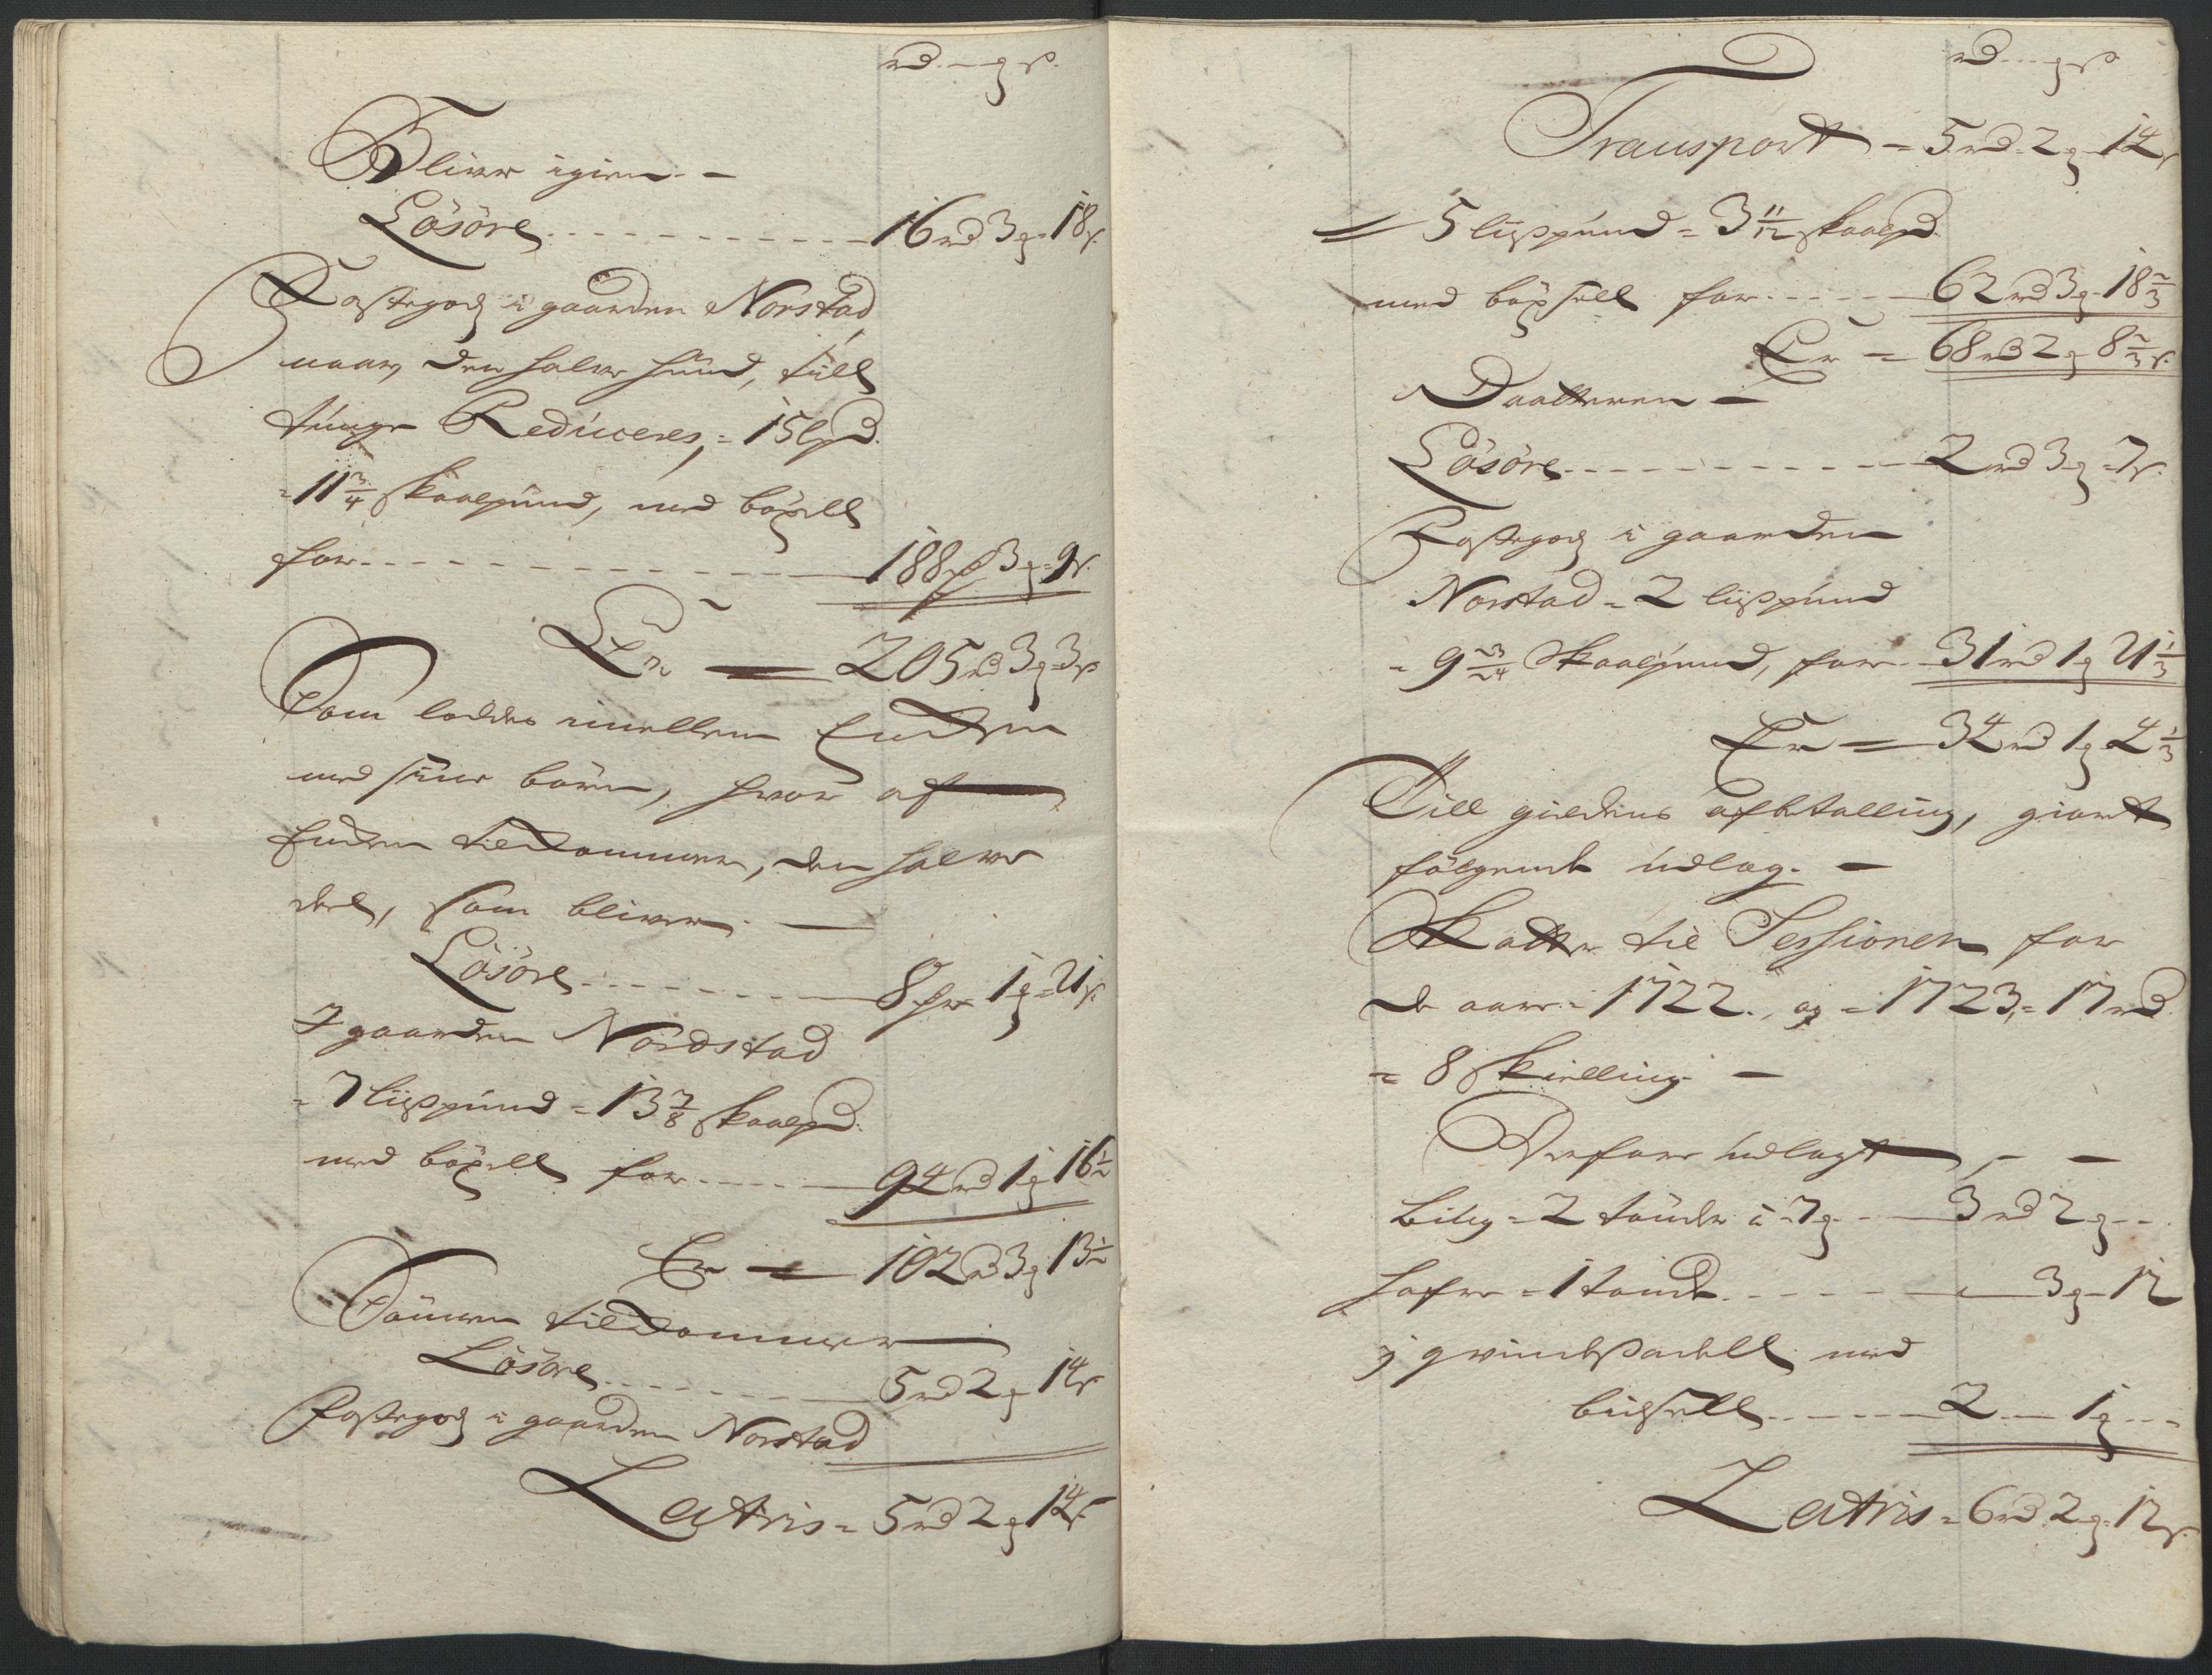 rd. - q s.
Bliver igien. -
Lösöre ----------- 16 rd 3 q - 18 s.
Fastegods i gaarden Norstad
naar den halve hund, till
tunge Reduceres, = 15 lpd.
= 11 3/4 skaalpund, med böxell
for ----------- 188 rd 3 q = 9 s.
Er — 205 rd 3 q = 3 s
Som loddes imellem Enchen
med sine börn, hvor af
Enchen tilkommer, den halve
deel, som bliver. —
Lösöre ------- 8 rd 1 q = 21 s.
I gaarden Nordstad
= 7 lispund = 13 7/8 skaalpd.
med böxell for ----- 94 rd 1 q 16 1/2
Er — 102 rd 3 q 13 1/2
Sönnen tilkommer
Lösöre ------- 5 rd 2 q 14 s
Fastegods i gaarden Norstad
Latris = 5 rd 2 q 14 s.
rd --- q s
Transport = 5 rd = 2 q = 14 s
= 5 lispund = 3 11/12 skaalpd.
med böxsell for ----- 62 rd 3 q - 18 2/3
Er = 68 rd 2 q 8 2/3 s.
Daatteren —
Lösöre ----------- 2 rd 3 q = 7 s.
Fastegods i gaarden
Norstad = 2 lispund
= 9 23/24 Skaalpund, for - 31 rd 1 q 21 1/3
Er = 34 rd 1 q 4 1/3
Till gieldens afbetalling, giort
fölgende udlag. —
Skatter til Sessionen for
de aar = 1722. og = 1723, = 17 rd.
= 8 skielling —
Derfore udlagt, - —
bilig = 2 tönder à 7 q - 3 rd 2 q --
hafre = 1 tönde ------ 3 q - 12
j qvindesadell med
bidsell ----- 2 — 1 q ---
Latris = 6 rd 2 q = 12 s.